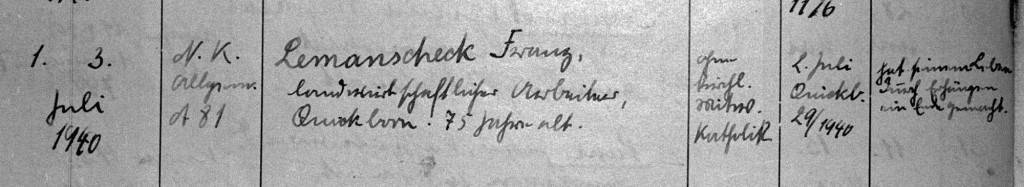 11/6
1. 3. N. K. Lemanscheck Franz, ohne 2. Juli hat seinem Leben
Juli Allgem. landwirtschaftlicher Aerbeitner, kirchl. Quickb. durch Erhängen
1940 A 81 Quickborn. 75 Jahre alt. 29/1940 ein Ende gemacht.
Katholik